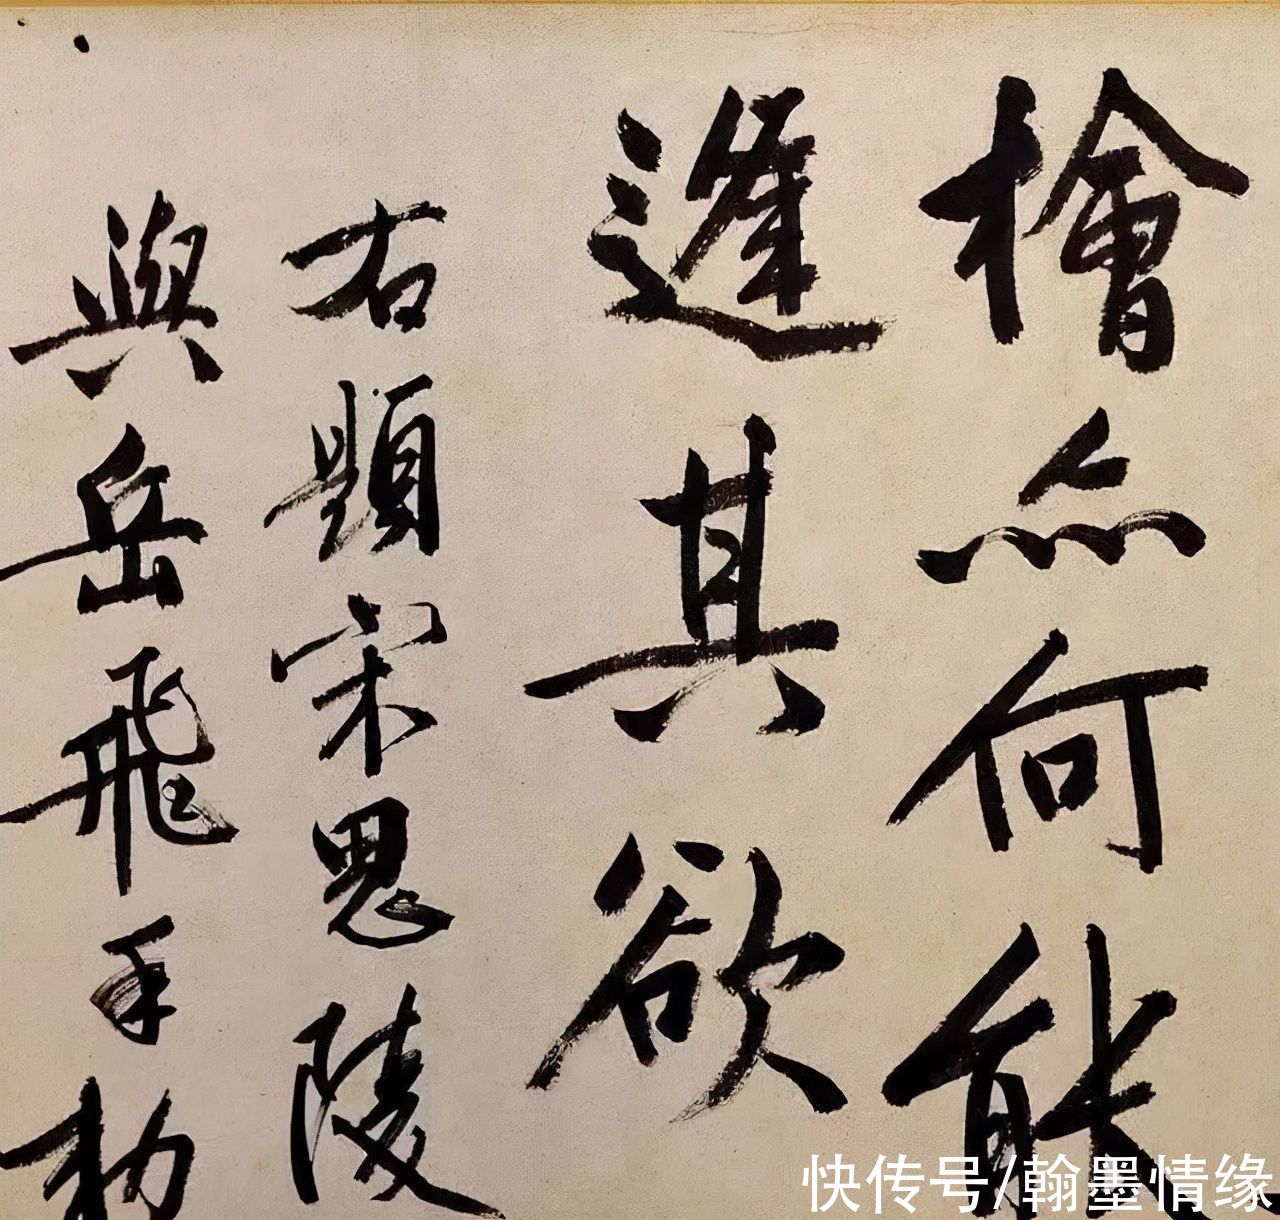 檜亦何能
逢其欲
右題宋思陵
與岳飛手勑
快传号/翰墨情缘